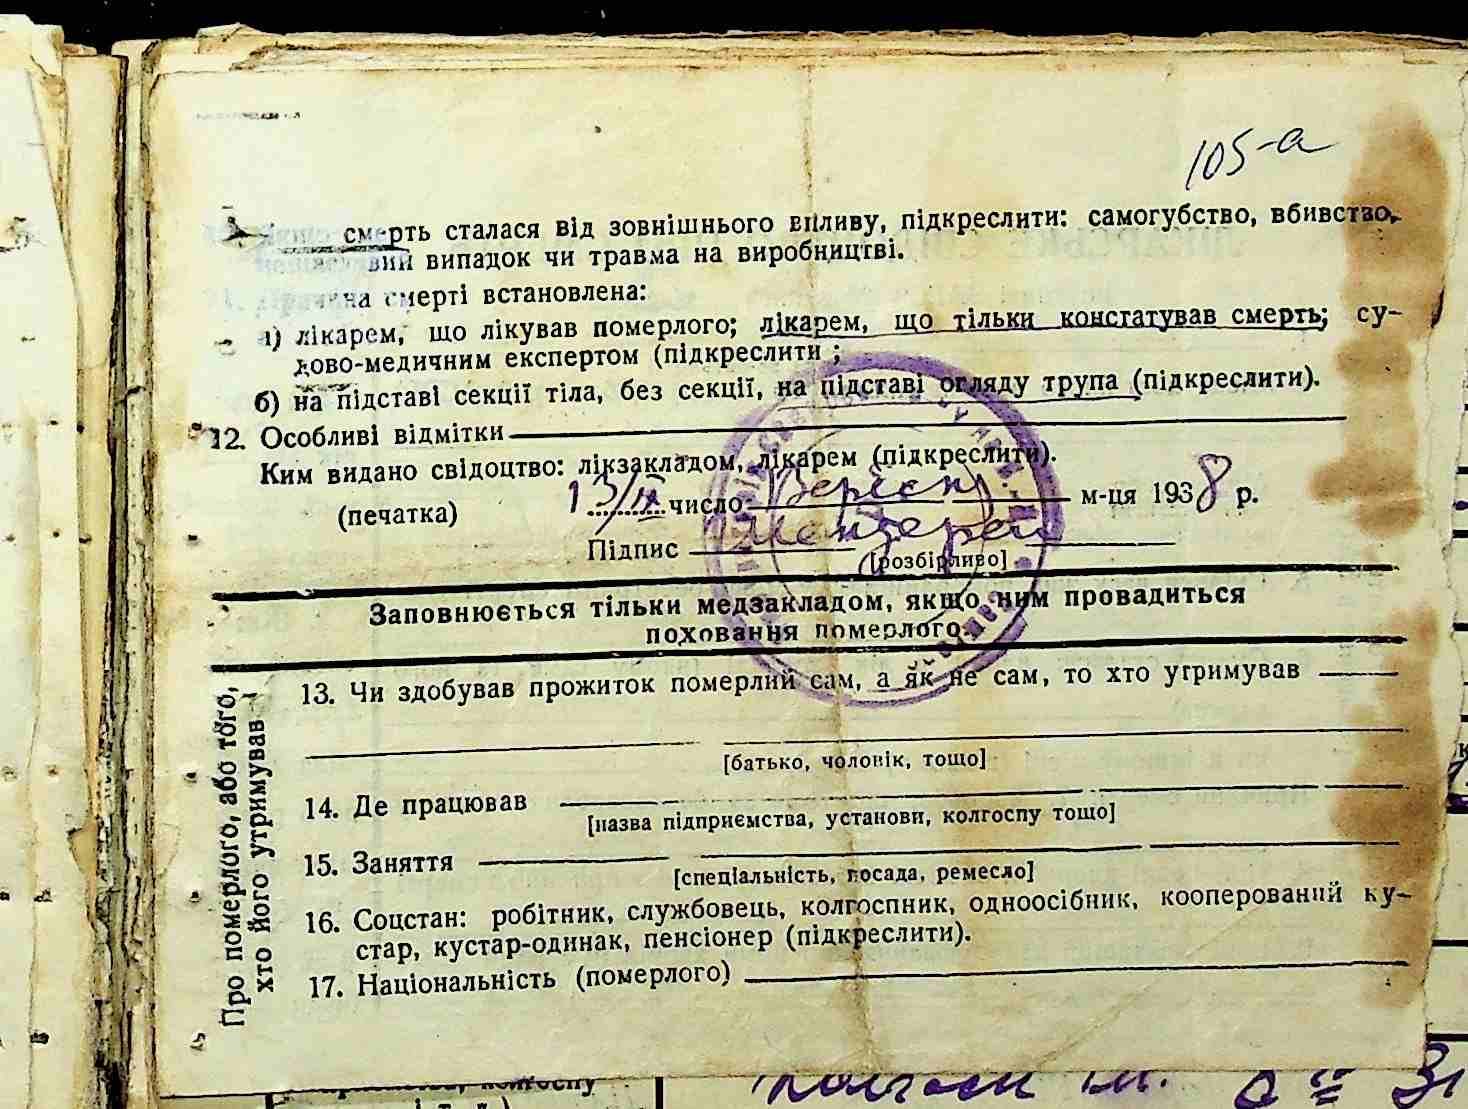 105-а
смерть сталася від зовнішнього впливу, підкреслити: самогубство, вбивство,
вий випадок чи травма на виробництві.
на смерті встановлена:
а) лікарем, що лікував померлого; лікарем, що тільки констатував смерть; су-
дово-медичним експертом (підкреслити ;
б) на підставі секції тіла, без секції, на підставі огляду трупа (підкреслити).
12. Особливі відмітки
Ким видано свідоцтво: лікзакладом, лікарем (підкреслити).
(печатка) 13/IX число Вересня м-ця 1938 р.
Підпис
[розбірливо]
Заповнюється тільки медзакладом, якщо ним провадиться
поховання померлого.
Про померлого, або того,
хто його утримував
13. Чи здобував прожиток померлий сам, а як не сам, то хто утримував
[батько, чоловік, тощо]
14. Де працював
[назва підприємства, установи, колгоспу тощо]
15. Заняття
[спеціальність, посада, ремесло]
16. Соцстан: робітник, службовець, колгоспник, одноосібник, кооперований ку-
стар, кустар-одинак, пенсіонер (підкреслити).
17. Національність (померлого)